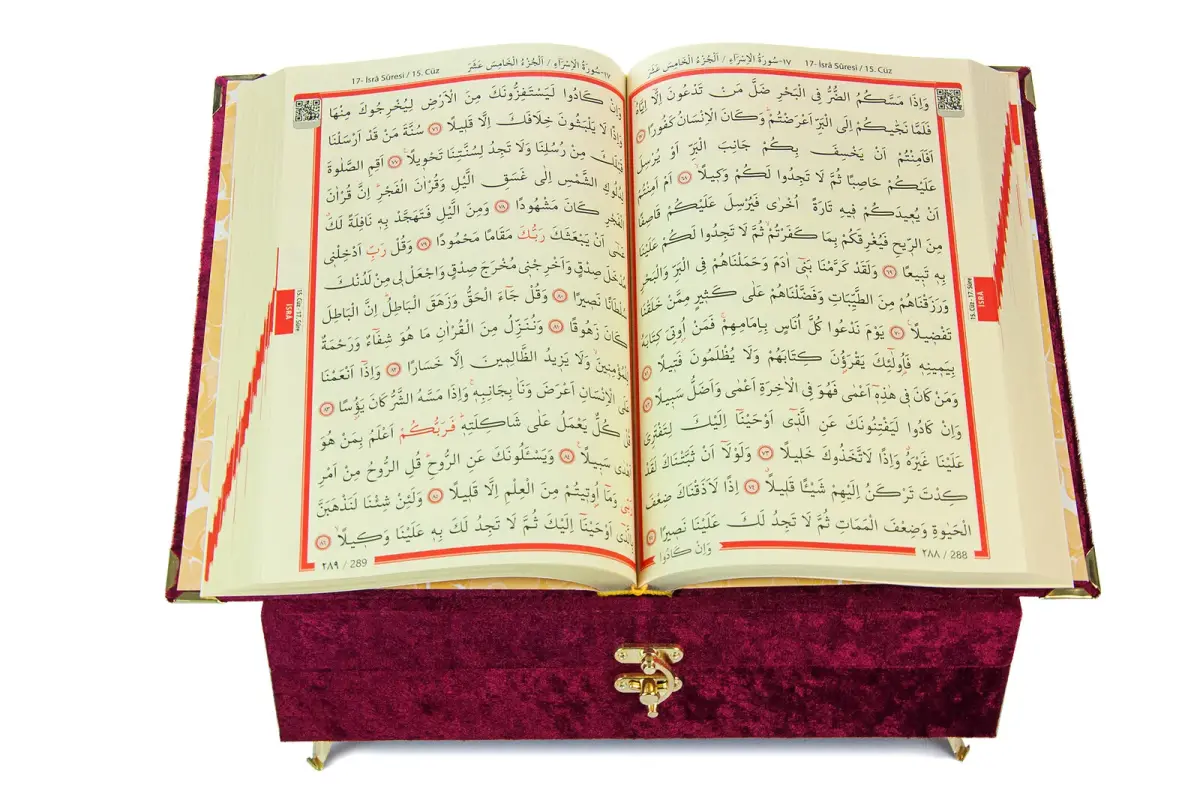 17- İsrâ Sûresi / 15. Cüz ١٧-سُورَةُ الْاِسْرَاءِ / اَلْجُزْءُ الْخَامِسَ عَشَرَ
وَاِذَا مَسَّكُمُ الضُّرُّ فِى الْبَحْرِ ضَلَّ مَنْ تَدْعُونَ اِلَّٓا اِيَّاهُۚ
فَلَمَّا نَجّٰيكُمْ اِلَى الْبَرِّ اَعْرَضْتُمْۜ وَكَانَ الْاِنْسَانُ كَفُورًا ﴿٦٧﴾
اَفَاَمِنْتُمْ اَنْ يَخْسِفَ بِكُمْ جَانِبَ الْبَرِّ اَوْ يُرْسِلَ
عَلَيْكُمْ حَاصِبًا ثُمَّ لَا تَجِدُوا لَكُمْ وَكٖيلًاۙ ﴿٦٨﴾ اَمْ اَمِنْتُمْ
اَنْ يُعٖيدَكُمْ فٖيهِ تَارَةً اُخْرٰى فَيُرْسِلَ عَلَيْكُمْ قَاصِفًا
مِنَ الرّٖيحِ فَيُغْرِقَكُمْ بِمَا كَفَرْتُمْۙ ثُمَّ لَا تَجِدُوا لَكُمْ عَلَيْنَا
بِهٖ تَبٖيعًا ﴿٦٩﴾ وَلَقَدْ كَرَّمْنَا بَنٖٓى اٰدَمَ وَحَمَلْنَاهُمْ فِى الْبَرِّ وَالْبَحْرِ
وَرَزَقْنَاهُمْ مِنَ الطَّيِّبَاتِ وَفَضَّلْنَاهُمْ عَلٰى كَثٖيرٍ مِمَّنْ خَلَقْنَا
تَفْضٖيلًا۟ ﴿٧٠﴾ يَوْمَ نَدْعُوا كُلَّ اُنَاسٍ بِاِمَامِهِمْۚ فَمَنْ اُوتِىَ كِتَابَهُ
بِيَمٖينِهٖ فَاُو۬لٰٓئِكَ يَقْرَؤُ۫نَ كِتَابَهُمْ وَلَا يُظْلَمُونَ فَتٖيلًا ﴿٧١﴾
وَمَنْ كَانَ فٖى هٰذِهٖٓ اَعْمٰى فَهُوَ فِى الْاٰخِرَةِ اَعْمٰى وَاَضَلُّ سَبٖيلًا ﴿٧٢﴾
وَاِنْ كَادُوا لَيَفْتِنُونَكَ عَنِ الَّذٖٓى اَوْحَيْنَٓا اِلَيْكَ لِتَفْتَرِىَ
عَلَيْنَا غَيْرَهُۗ وَاِذًا لَاتَّخَذُوكَ خَلٖيلًا ﴿٧٣﴾ وَلَوْلَٓا اَنْ ثَبَّتْنَاكَ لَقَدْ
كِدْتَ تَرْكَنُ اِلَيْهِمْ شَيْـًٔا قَلٖيلًاۗ ﴿٧٤﴾ اِذًا لَاَذَقْنَاكَ ضِعْفَ
الْحَيٰوةِ وَضِعْفَ الْمَمَاتِ ثُمَّ لَا تَجِدُ لَكَ عَلَيْنَا نَصٖيرًا ﴿٧٥﴾
وَاِنْ كَادُوا
٢٨٨ / 288
15. Cüz - 17. Sûre
İSRÂ
17- İsrâ Sûresi / 15. Cüz ١٧-سُورَةُ الْاِسْرَاءِ / اَلْجُزْءُ الْخَامِسَ عَشَرَ
وَاِنْ كَادُوا لَيَسْتَفِزُّونَكَ مِنَ الْاَرْضِ لِيُخْرِجُوكَ مِنْهَا
وَاِذًا لَا يَلْبَثُونَ خِلَافَكَ اِلَّا قَلٖيلًا ﴿٧٦﴾ سُنَّةَ مَنْ قَدْ اَرْسَلْنَا
قَبْلَكَ مِنْ رُسُلِنَا وَلَا تَجِدُ لِسُنَّتِنَا تَحْوٖيلًا۟ ﴿٧٧﴾ اَقِمِ الصَّلٰوةَ
لِدُلُوكِ الشَّمْسِ اِلٰى غَسَقِ الَّيْلِ وَقُرْاٰنَ الْفَجْرِۜ اِنَّ قُرْاٰنَ
الْفَجْرِ كَانَ مَشْهُودًا ﴿٧٨﴾ وَمِنَ الَّيْلِ فَتَهَجَّدْ بِهٖ نَافِلَةً لَكَۗ
عَسٰٓى اَنْ يَبْعَثَكَ رَبُّكَ مَقَامًا مَحْمُودًا ﴿٧٩﴾ وَقُلْ رَبِّ اَدْخِلْنٖى
مُدْخَلَ صِدْقٍ وَاَخْرِجْنٖى مُخْرَجَ صِدْقٍ وَاجْعَلْ لٖى مِنْ لَدُنْكَ
سُلْطَانًا نَصٖيرًا ﴿٨٠﴾ وَقُلْ جَٓاءَ الْحَقُّ وَزَهَقَ الْبَاطِلُۜ اِنَّ الْبَاطِلَ
كَانَ زَهُوقًا ﴿٨١﴾ وَنُنَزِّلُ مِنَ الْقُرْاٰنِ مَا هُوَ شِفَٓاءٌ وَرَحْمَةٌ
لِلْمُؤْمِنٖينَۙ وَلَا يَزٖيدُ الظَّالِمٖينَ اِلَّا خَسَارًا ﴿٨٢﴾ وَاِذَٓا اَنْعَمْنَا
عَلَى الْاِنْسَانِ اَعْرَضَ وَنَاٰ بِجَانِبِهٖۚ وَاِذَا مَسَّهُ الشَّرُّ كَانَ يَؤُ۫سًا ﴿٨٣﴾
قُلْ كُلٌّ يَعْمَلُ عَلٰى شَاكِلَتِهٖۜ فَرَبُّكُمْ اَعْلَمُ بِمَنْ هُوَ
اَهْدٰى سَبٖيلًا۟ ﴿٨٤﴾ وَيَسْـَٔلُونَكَ عَنِ الرُّوحِۜ قُلِ الرُّوحُ مِنْ اَمْرِ
رَبّٖى وَمَٓا اُو۫تٖيتُمْ مِنَ الْعِلْمِ اِلَّا قَلٖيلًا ﴿٨٥﴾ وَلَئِنْ شِئْنَا لَنَذْهَبَنَّ
بِالَّذٖٓى اَوْحَيْنَٓا اِلَيْكَ ثُمَّ لَا تَجِدُ لَكَ بِهٖ عَلَيْنَا وَكٖيلًاۙ ﴿٨٦﴾
٢٨٩ / 289
15. Cüz - 17. Sûre
İSRÂ